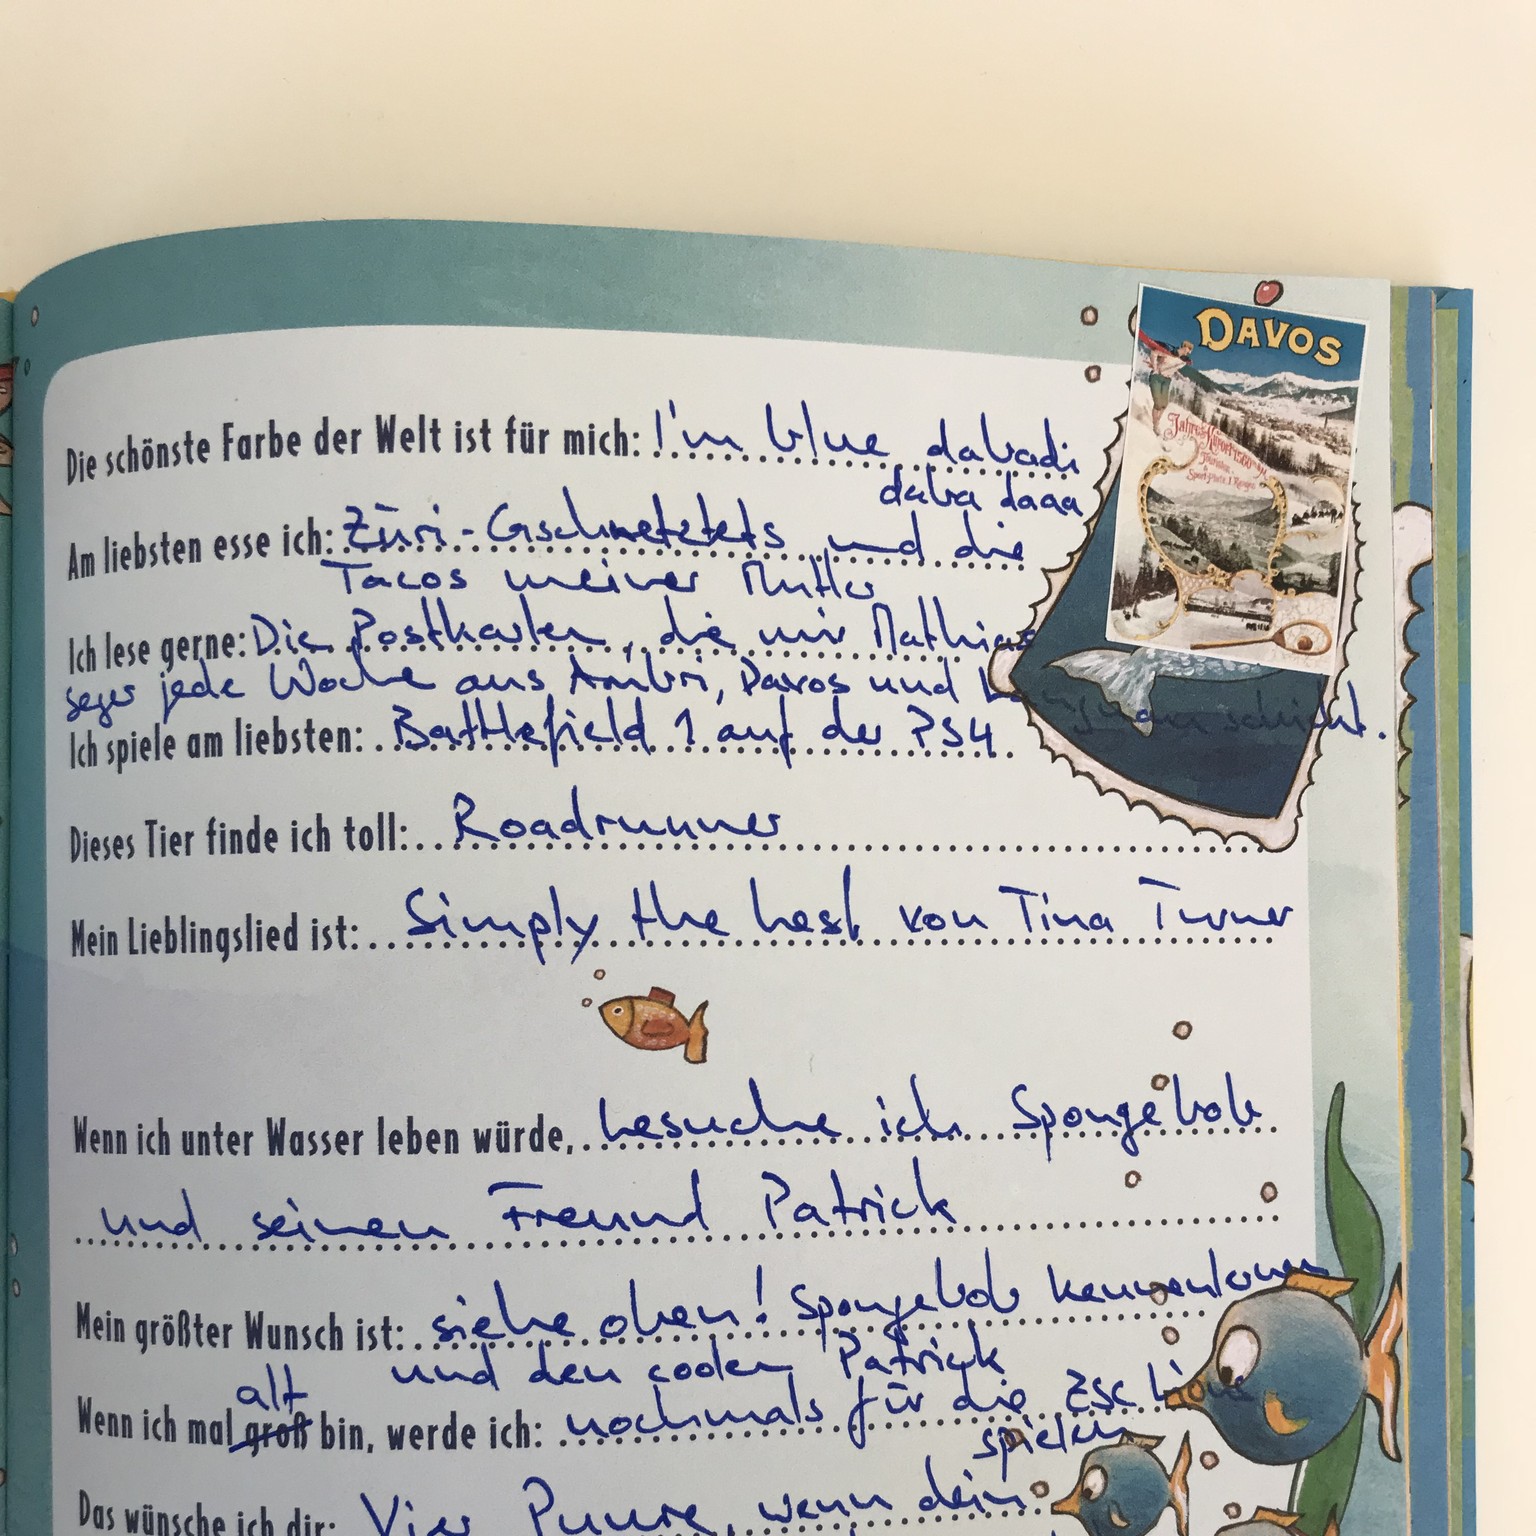 DAVOS
Die schönste Farbe der Welt ist für mich: I'm blue dabadi
daba daaa
Am liebsten esse ich: Züri-Gschnetzlets und die
Tacos meiner Mutter
Ich lese gerne: Die Postkarten, die mir Mathias
Seger jede Woche aus Ambri, Davos und Langnau schickt.
Ich spiele am liebsten: Battlefield 1 auf der PS4.
Dieses Tier finde ich toll: Roadrunner
Mein Lieblingslied ist: Simply the best von Tina Turner
Wenn ich unter Wasser leben würde, besuche ich Spongebob
und seinen Freund Patrick
Mein größter Wunsch ist: siehe oben! Spongebob kennenlernen
und den coolen Patrick
alt
Wenn ich mal groß bin, werde ich: nochmals für die ZSC Lions
spielen
Das wünsche ich dir: Vier Puure, wenn dein